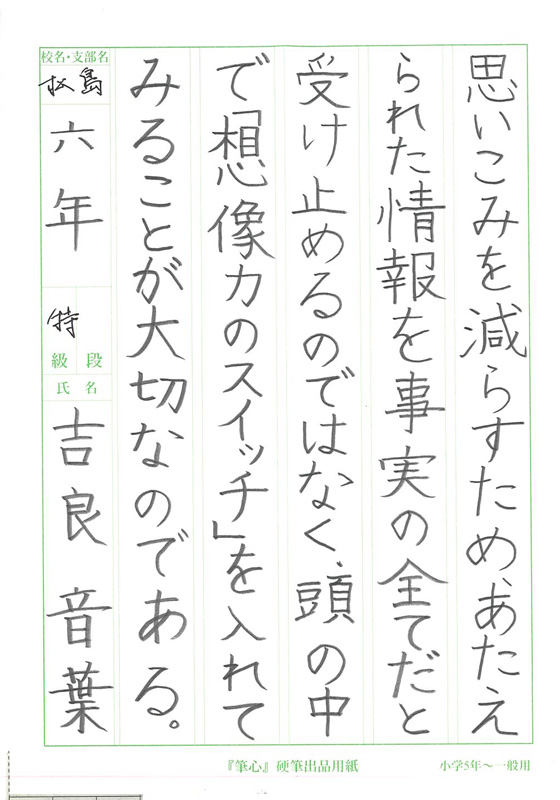 思いこみを減らすため、あたえ
られた情報を事実の全てだと
受け止めるのではなく、頭の中
で「想像力のスイッチ」を入れて
みることが大切なのである。
校名・支部名
松島
六年
特
級段
氏名
吉良音葉
『筆心』硬筆出品用紙
小学5年～一般用